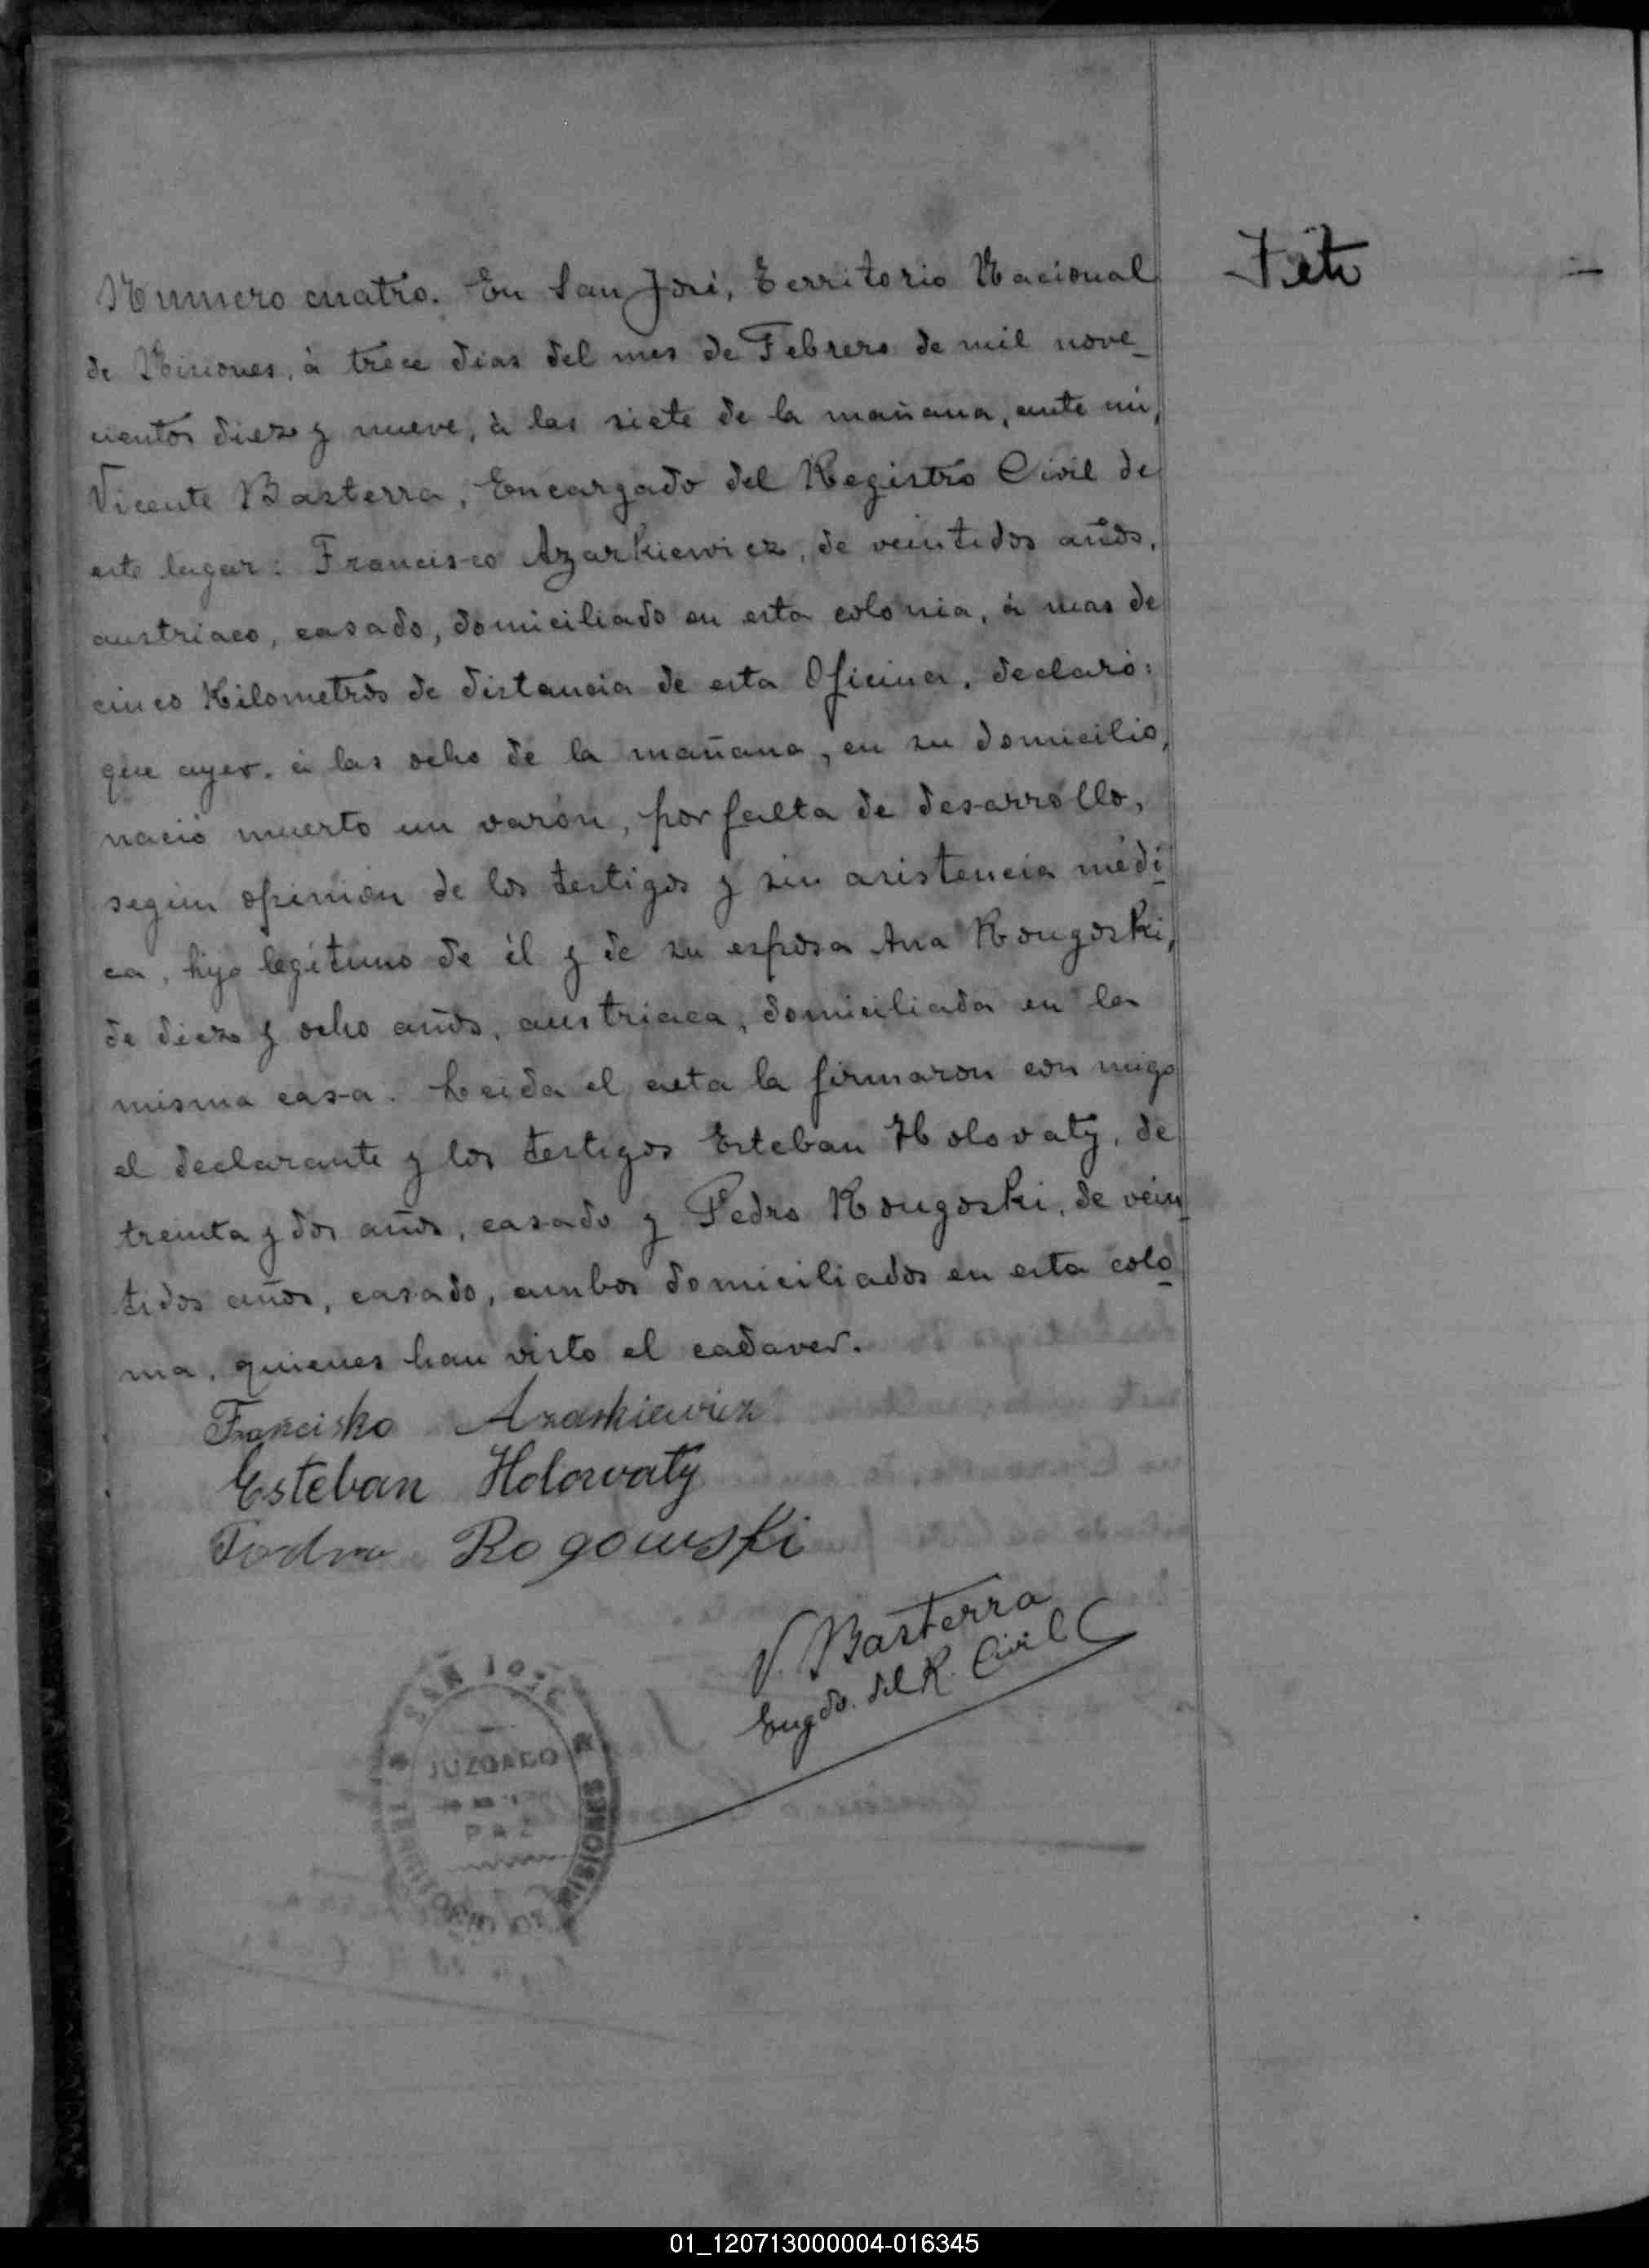 Numero cuatro. En San José, Territorio Nacional
de Misiones, à trece dias del mes de Febrero de mil nove_
cientos diez y nueve, à las siete de la mañana, ante mi,
Vicente Basterra, Encargado del Registro Civil de
este lugar: Francisco Azarkiewicz, de veintidos años,
austriaco, casado, domiciliado en esta colonia, à mas de
cinco Kilometros de distancia de esta Oficina, declaró:
que ayer, à las ocho de la mañana, en su domicilio,
nació muerto un varón, por falta de desarrollo,
según opinión de los testigos y sin asistencia médi_
ca, hijo legítimo de él y de su esposa Ana Rougoski,
de diez y ocho años, austriaca, domiciliada en la
misma casa. Leida el acta la firmaron con migo
el declarante y los testigos Esteban Holovaty, de
treinta y dos años, casado y Pedro Rougoski, de vein_
tidos años, casado, ambos domiciliados en esta colo_
nia, quienes han visto el cadaver.
Francisko Azarkiewicz
Esteban Holowaty
Rogowski
V. Basterra
Engdo. del R. Civil
SAN JOSE
JUZGADO
DE
PAZ
TERRITORIO DE MISIONES
Feto
01_120713000004-016345